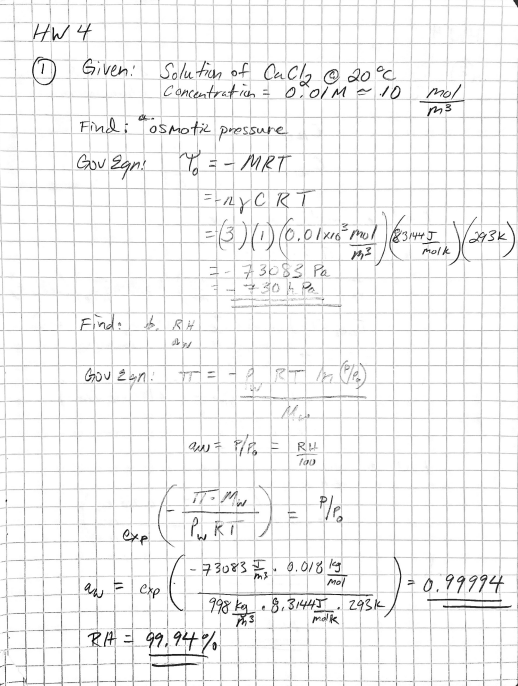 HW 4
① Given: Solution of CaCl₂ @ 20°C
Concentration = 0.01M ≈ 10 mol/m³
Find: a. osmotic pressure
Gov Eqn: Ψ₀ = - MRT
= -nγ C R T
= (3)(1)(0.01x10³ mol/m³)(8.3144 J/molK)(293K)
= - 73083 Pa
= - 730 hPa
Find: b. RH
aw
Gov Eqn: π = - ρw RT ln(P/P₀) / Mw
aw = P/P₀ = RH/100
exp(- π · Mw / ρw RT) = P/P₀
aw = exp(- 73083 J/m³ · 0.018 kg/mol / 998 kg/m³ · 8.3144 J/molK · 293K) = 0.99994
RH = 99.94%